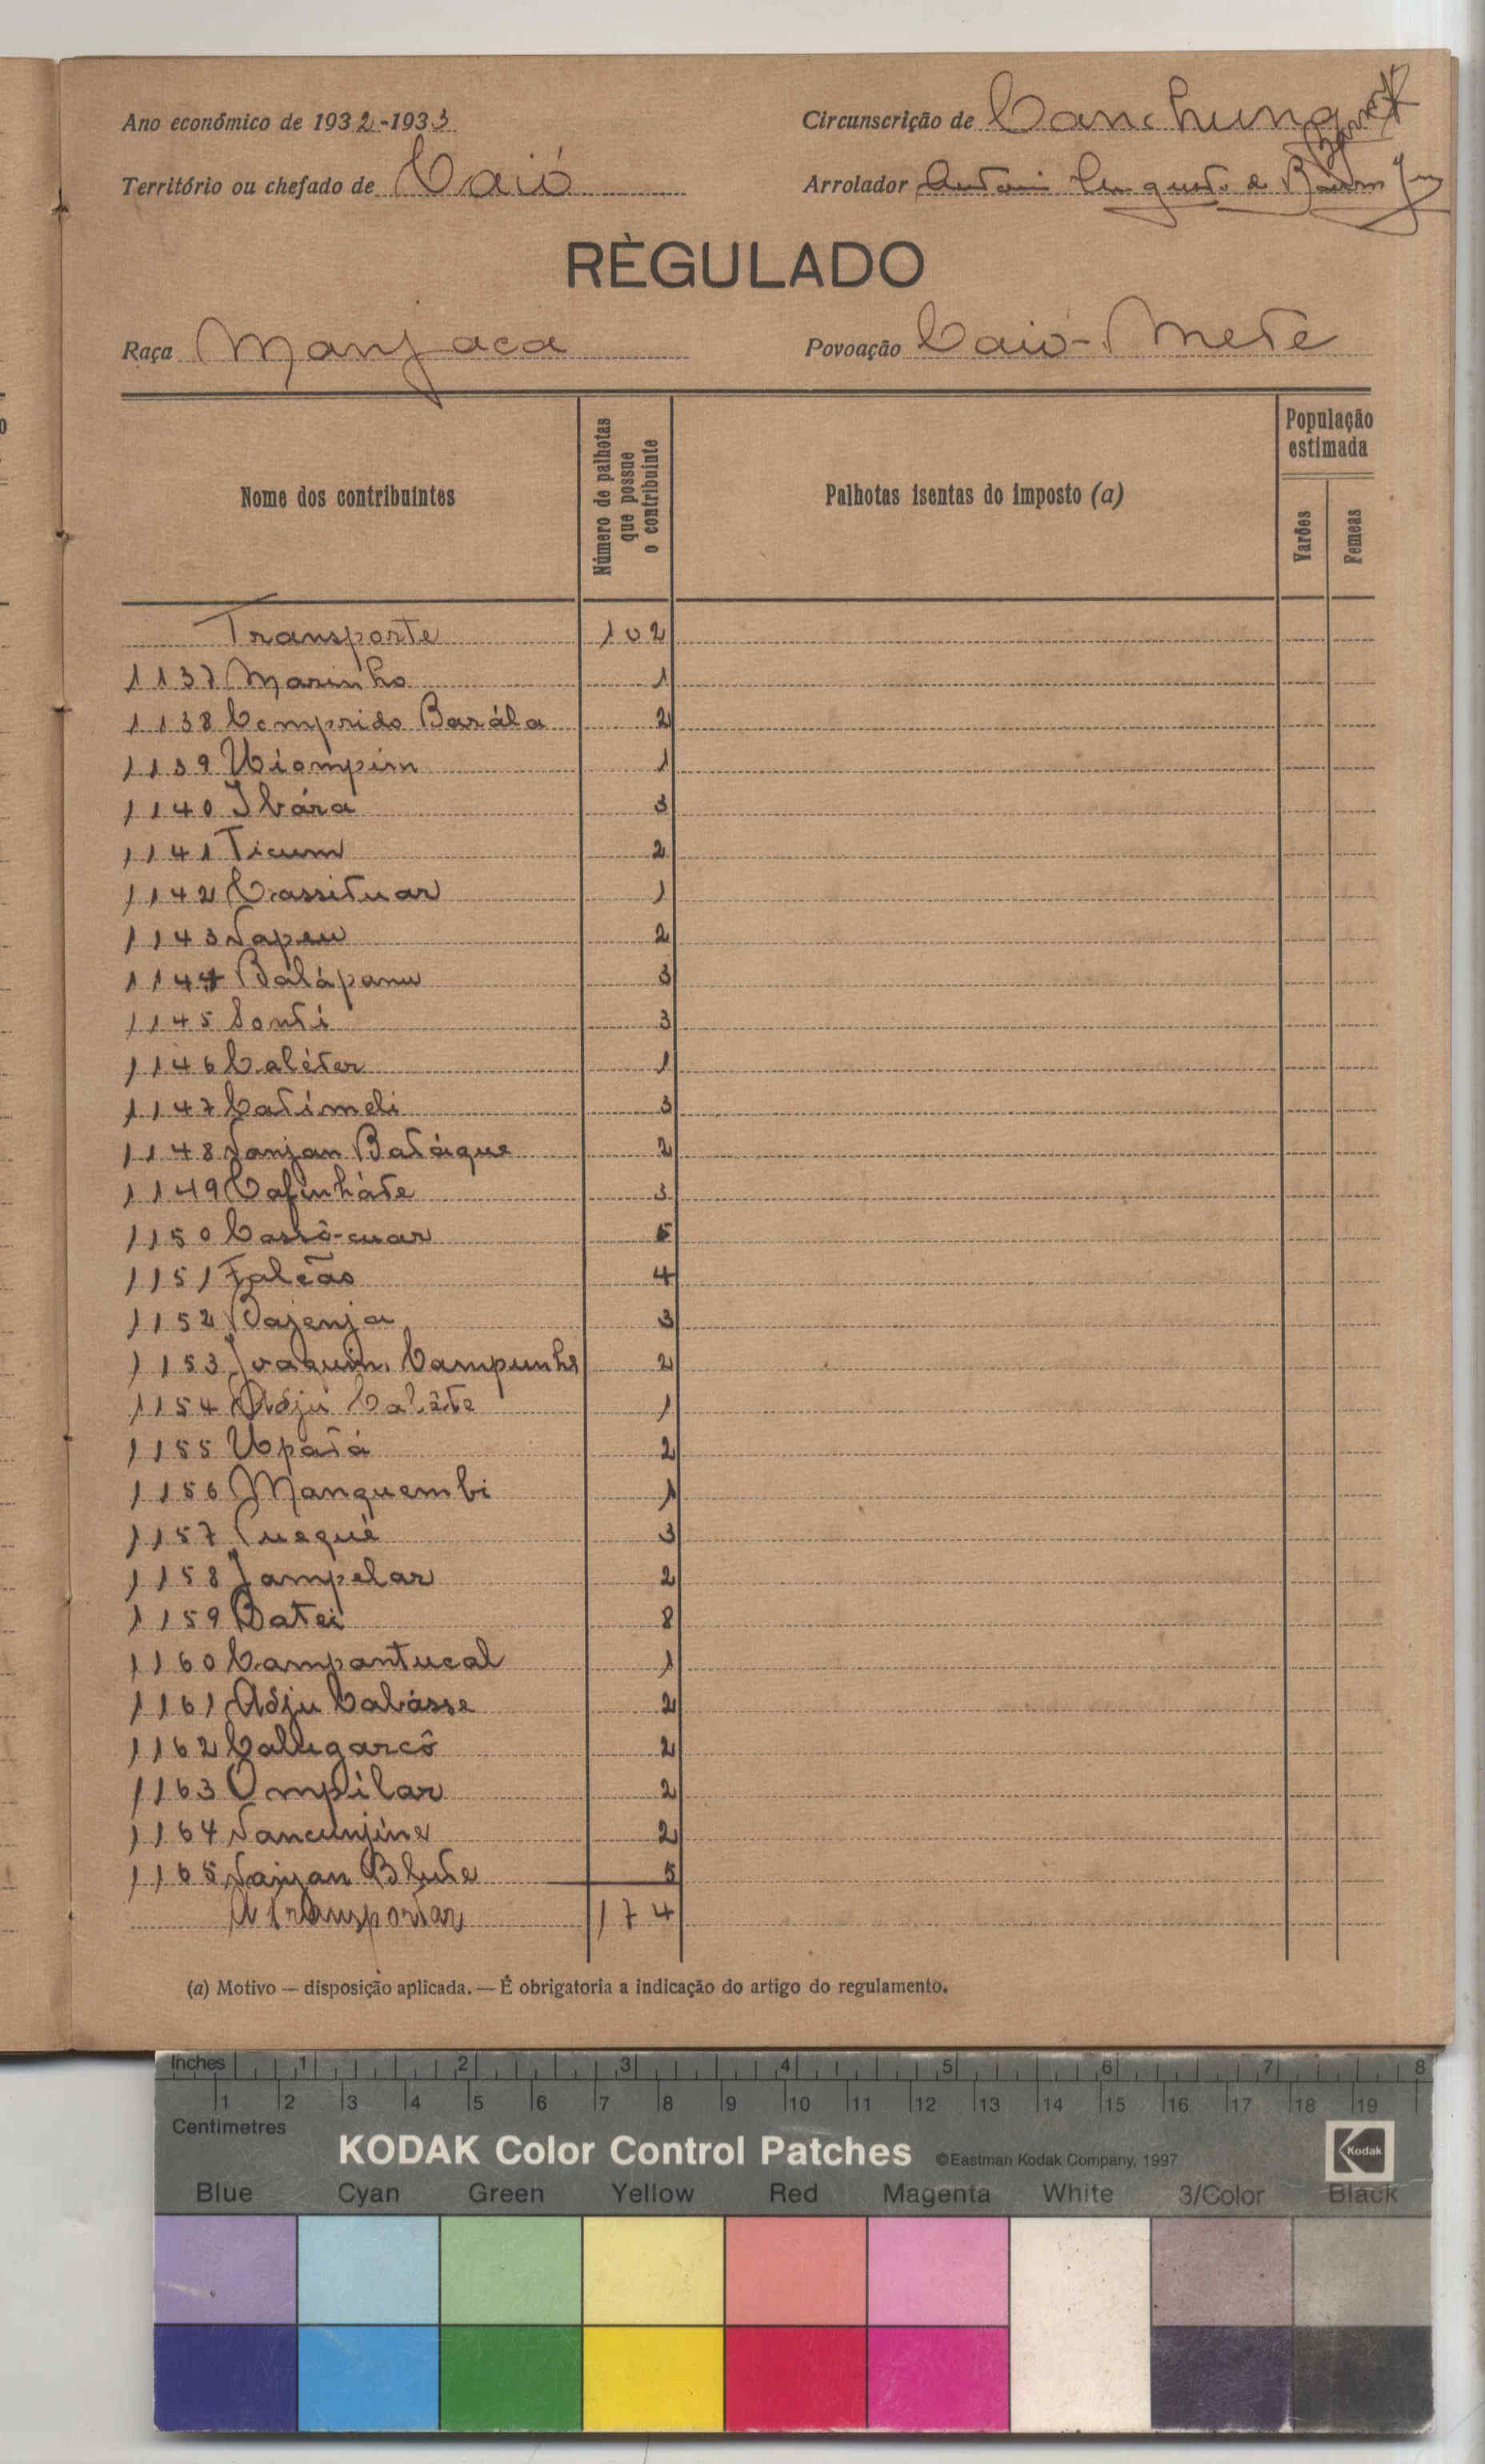 Ano económico de 1932-1933
Circunscrição de Canchungo
Território ou chefado de Caió
Arrolador Antonio Augusto de Barros Jor
RÈGULADO
Raça Manjaca
Povoação Caió-Mete
Nome dos contribuintes
Número de palhotas que possue o contribuinte
Palhotas isentas do imposto (a)
População estimada
Varões
Femeas
Transporte 102
1137 Marinho 1
1138 Comprido Barála 2
1139 Uiompim 1
1140 Ibára 3
1141 Ticum 2
1142 Cassituar 1
1143 Napeu 2
1144 Balápanu 3
1145 Sonti 3
1146 Caléter 1
1147 Catimeli 3
1148 Nanjan Batáque 2
1149 Cafinháte 3
1150 Cassô-cuar 5
1151 Falcão 4
1152 Bajenja 3
1153 Joaquim Campunho 2
1154 Adju Caléte 1
1155 Upatá 2
1156 Manguembi 1
1157 Cuequé 3
1158 Jampelar 2
1159 Batei 8
1160 Campantucal 1
1161 Adju Cabásse 2
1162 Calugarcô 2
1163 Ompilar 2
1164 Nancunjine 2
1165 Nanjan Blute 5
A transportar 174
(a) Motivo — disposição aplicada. — É obrigatoria a indicação do artigo do regulamento.
Inches 1 2 3 4 5 6 7 8
1 2 3 4 5 6 7 8 9 10 11 12 13 14 15 16 17 18 19
Centimetres
KODAK Color Control Patches ©Eastman Kodak Company, 1997 Kodak
Blue Cyan Green Yellow Red Magenta White 3/Color Black